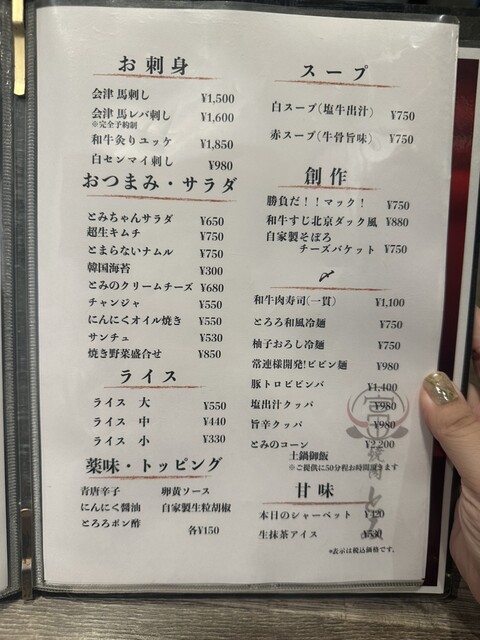 お刺身
会津 馬刺し ¥1,500
会津 馬レバ刺し ¥1,600
※完全予約制
和牛炙りユッケ ¥1,850
白センマイ刺し ¥980
おつまみ・サラダ
とみちゃんサラダ ¥650
超生キムチ ¥750
とまらないナムル ¥750
韓国海苔 ¥300
とみのクリームチーズ ¥680
チャンジャ ¥550
にんにくオイル焼き ¥550
サンチュ ¥530
焼き野菜盛合せ ¥850
ライス
ライス 大 ¥550
ライス 中 ¥440
ライス 小 ¥330
薬味・トッピング
青唐辛子 卵黄ソース
にんにく醤油 自家製生粒胡椒
とろろポン酢 各¥150
スープ
白スープ(塩牛出汁) ¥750
赤スープ(牛骨旨味) ¥750
創作
勝負だ!!マック! ¥750
和牛すじ北京ダック風 ¥880
自家製そぼろ
チーズバケット ¥750
〆
和牛肉寿司(一貫) ¥1,100
とろろ和風冷麺 ¥750
柚子おろし冷麺 ¥750
常連様開発!ビビン麺 ¥980
豚トロビビンバ ¥1,400
塩出汁クッパ ¥980
旨辛クッパ ¥980
とみのコーン ¥2,200
土鍋御飯
※ご提供に50分程お時間頂きます
甘味
本日のシャーベット ¥420
生抹茶アイス ¥530
*表示は税込価格です。
焼肉